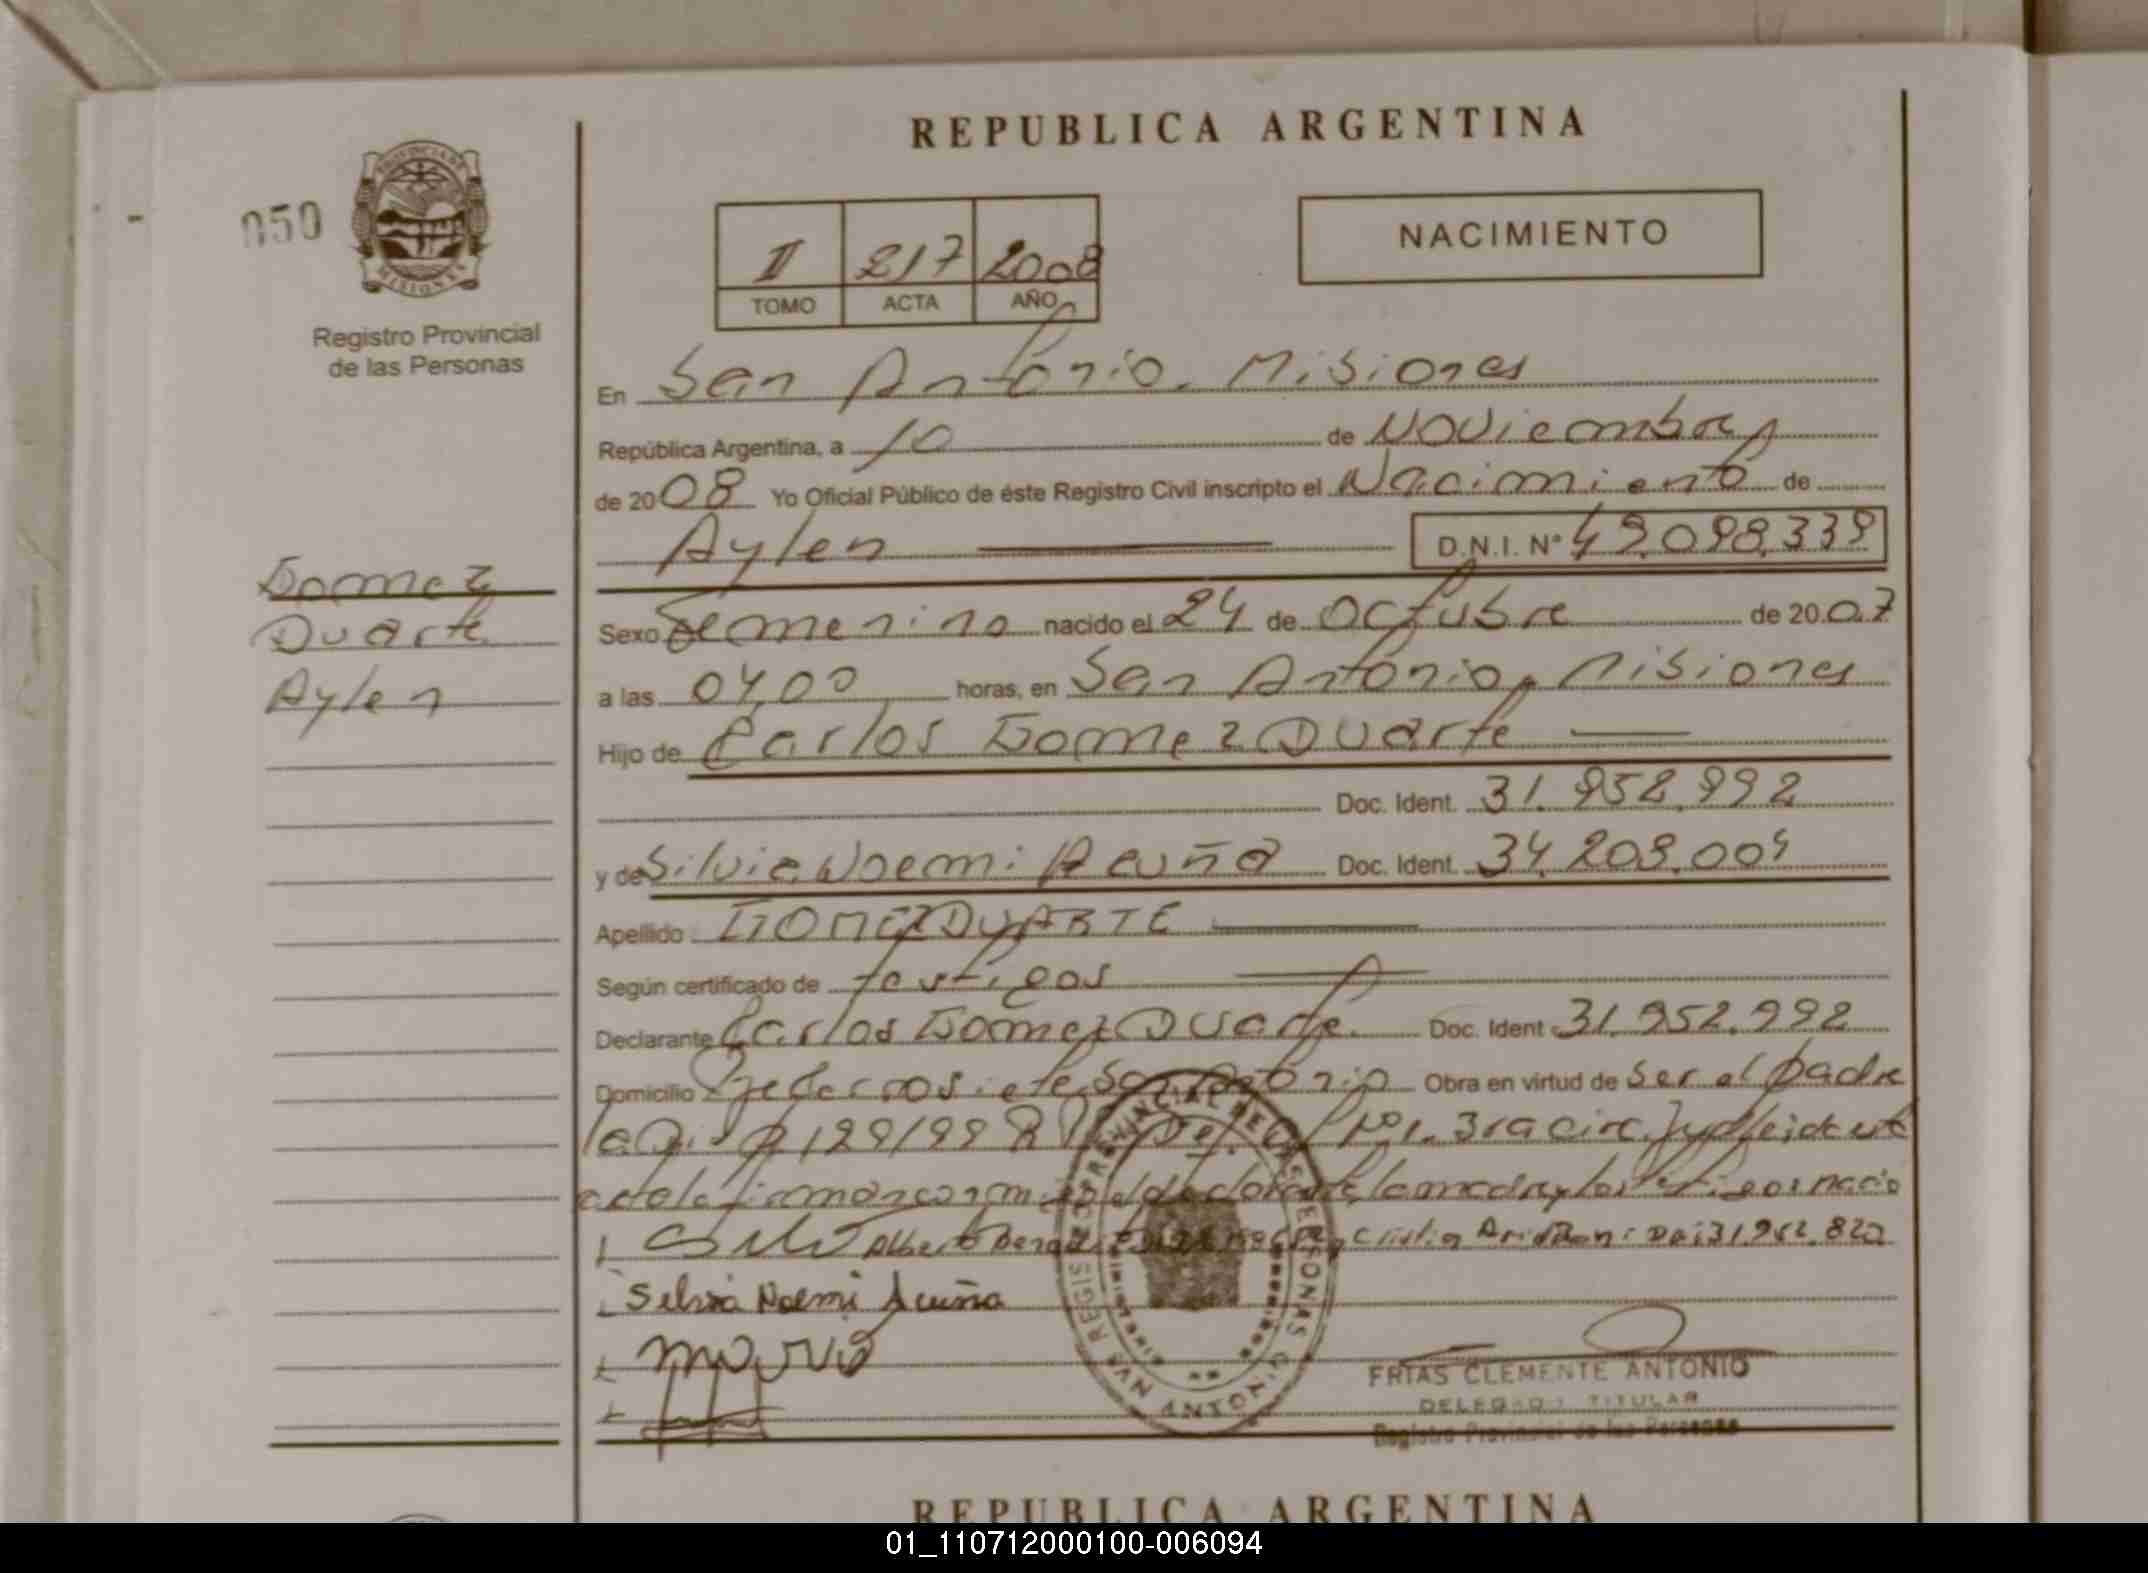 REPUBLICA ARGENTINA
050
PROVINCIA DE
MISIONES
Registro Provincial
de las Personas
II 217 2008
TOMO ACTA AÑO
NACIMIENTO
En San Antonio, Misiones
República Argentina, a 10 de Noviembre
de 2008 Yo Oficial Público de éste Registro Civil inscripto el Nacimiento de
Aylen D.N.I. Nº 49.098.339
Gomez
Duarte
Aylen
Sexo Femenino nacido el 24 de Octubre de 2007
a las 04,00 horas, en San Antonio, Misiones
Hijo de Carlos Gomez Duarte
Doc. Ident. 31.952.992
y de Silvia Noemi Acuña Doc. Ident. 34.209.004
Apellido GOMEZ DUARTE
Según certificado de testigos
Declarante Carlos Gomez Duarte Doc. Ident 31.952.992
Domicilio San Antonio Obra en virtud de ser el padre
129/99 Nº 1. 3ra circ. Jud
acta la firman conmigo el declarante la madre y los testigos
Alberto 31.952.822
Silvia Noemi Acuña
REGISTRO PROVINCIAL DE LAS PERSONAS
SAN ANTONIO
FRIAS CLEMENTE ANTONIO
DELEGADO TITULAR
Registro Provincial de las Personas
REPUBLICA ARGENTINA
01_110712000100-006094